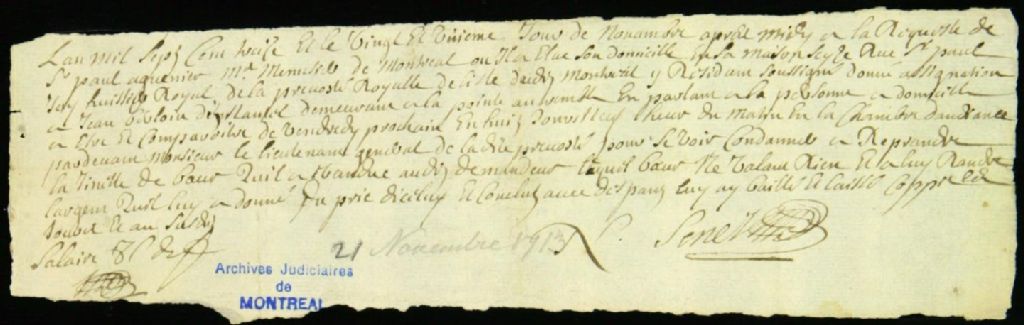 Lan mil Sept Cent treise Et le Vingt Et Unieme Jour de Nouambre aprest midy a la Requeste de
Sr paul Mr Menusié de Montreal ou Il a Elue Son domicille En Sa maison Seyze Rue St paul
Jay huissié Royal de la prevosté Royalle de Lisle dudit Montreal y Residant Soussigné donné assignation
a Jean demeurant a la pointe au En parlant a sa personne a domicille
a Estre Et Comparoistre de Vendredy prochain En huit Jour heure du Matin En la Chambre daudiance
pardevant Monsieur le lieutenant general de la dite prevosté pour Se Voir Condamné a Reprandre
la de quil a Vandue audit demandeur Ne Valant Rien Et a luy Randre
largent quil luy a donné du prix diceluy Et Conclut aux despans luy ay baillé Et Laissé Coppie
Jour Et an Susdit
Salaire
21 Novembre 1913
Senet
Archives Judiciaires
de
MONTREAL